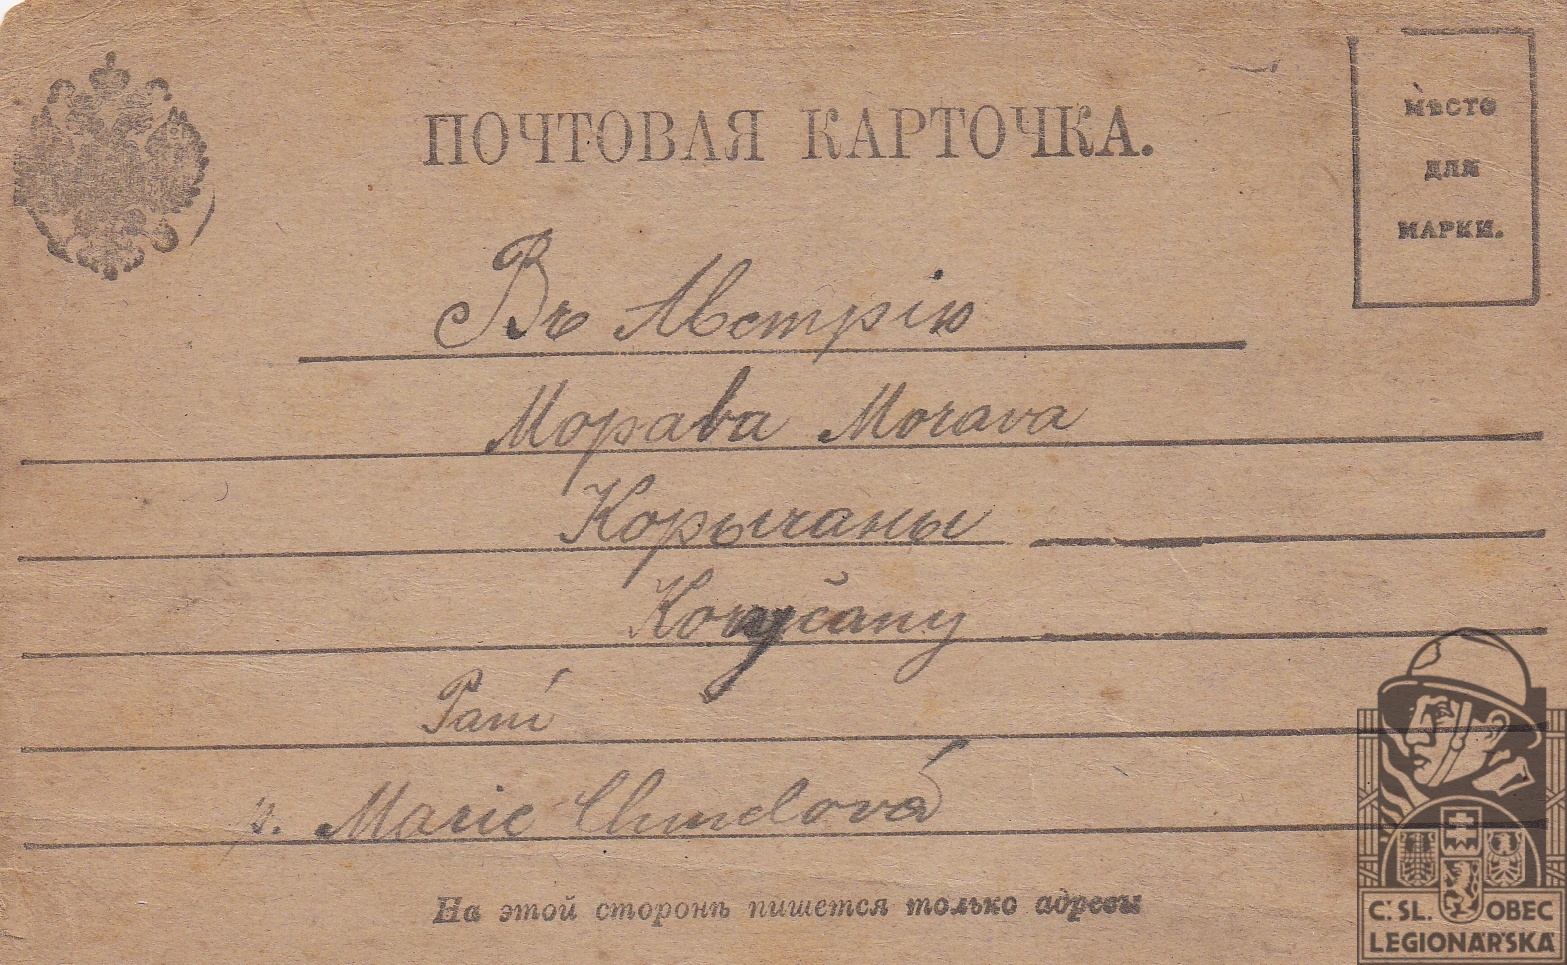 ПОЧТОВАЯ КАРТОЧКА.
МѢСТО
ДЛЯ
МАРКИ.
Въ Австрію
Морава Morava
Корычаны
Koryčany
Paní
p. Marie Chmelová
На этой сторонѣ пишется только адресъ
Č. SL. OBEC
LEGIONÁŘSKÁ